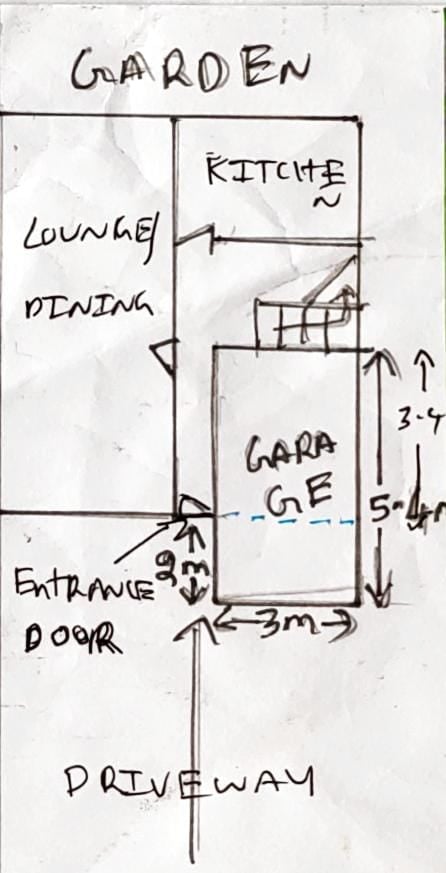 GARDEN
KITCHE
N
LOUNGE/
DINING
3.4
GARA
GE
5.4m
2m
ENTRANCE
DOOR
3m
DRIVEWAY